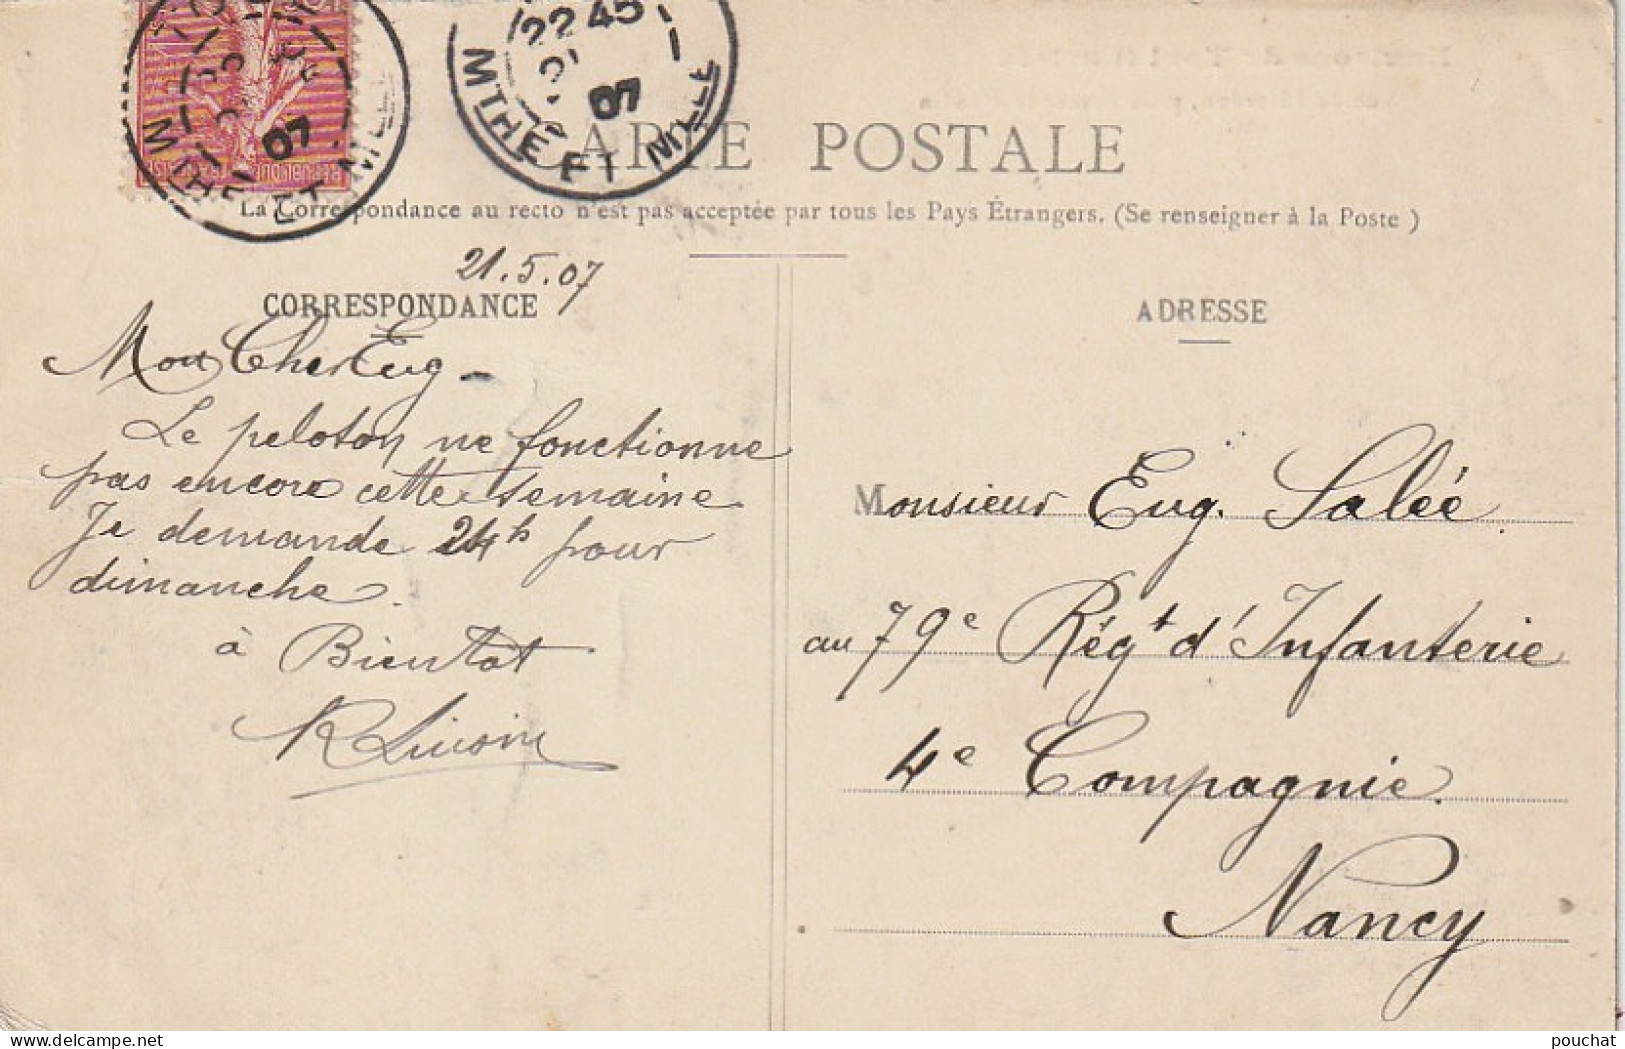 22 45
21
07
MTHE ET MLLE
07
MTHE ET MLLE
CARTE POSTALE
La Correspondance au recto n'est pas acceptée par tous les Pays Étrangers. (Se renseigner à la Poste)
21.5.07
CORRESPONDANCE
Mon Cher Eug -
Le peloton ne fonctionne
pas encore cette semaine
Je demande 24h pour
dimanche.
à Bientot
ADRESSE
Monsieur Eug. Salée.
au 79e Régt d'Infanterie
4e Compagnie.
Nancy
pouchat